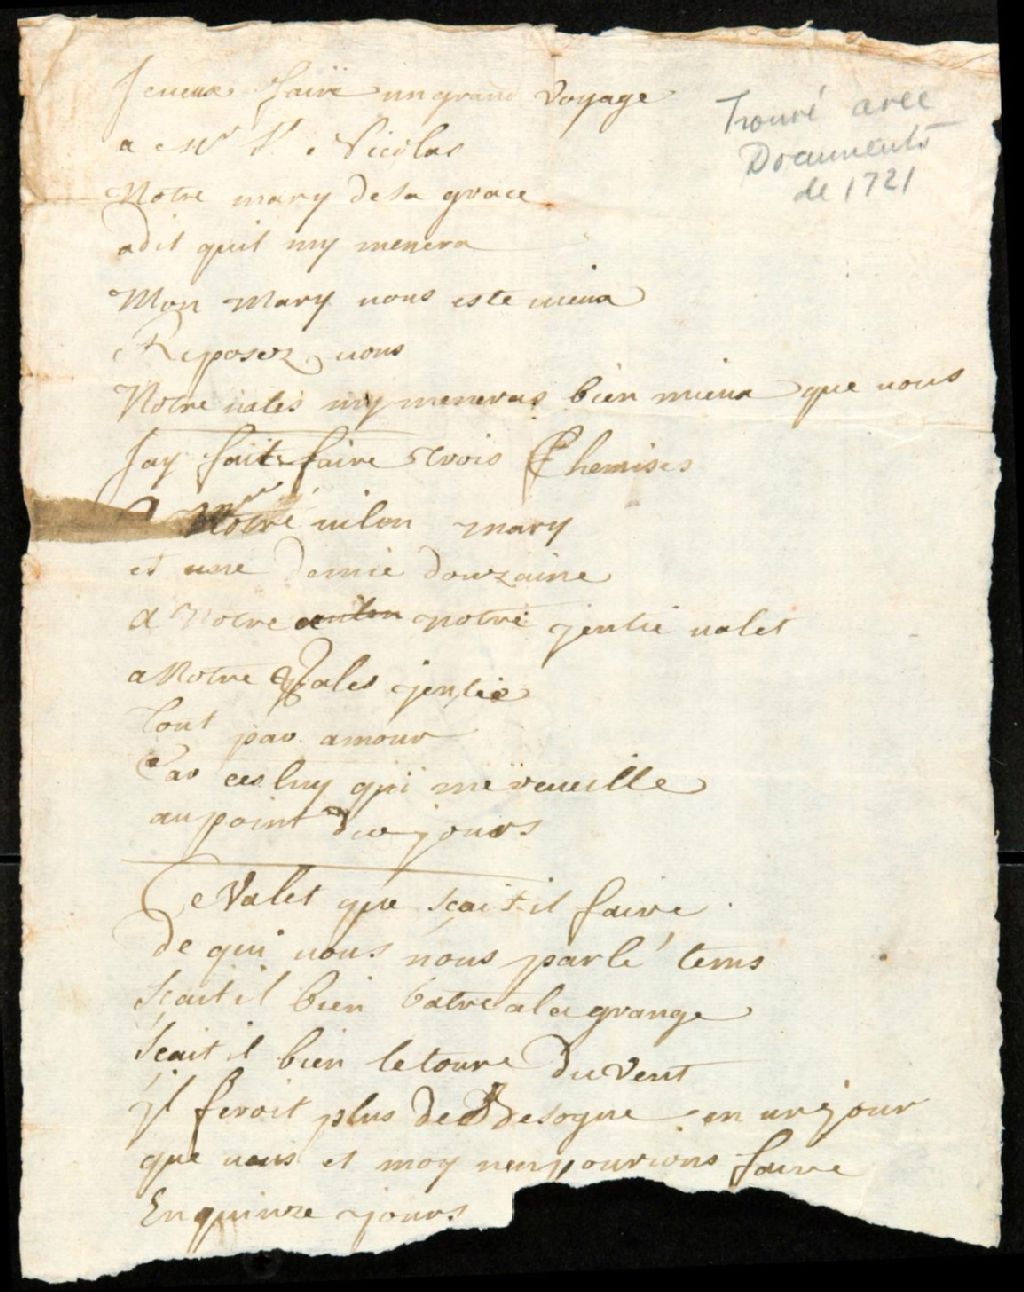 Je veux faire un grand voyage
Trouvé avec
Documents
de 1721
a Mr St Nicolas
Notre mary de sa grace
a dit quil my menera
Mon mary vous este vieux
Reposez vous
Notre vales my meneras bien mieux que vous
Jay fait faire trois Chemises
A Notre vilon mary
et une demie douzaine
a Notre notre jentie valet
a Notre Vales jentie
Tout par amour
Car ces luy qui me reveille
au point du jours
Ce Valet que sçait il faire
de qui vous nous parlé tems
sçait il bien batre a la grange
sçait il bien le tour du vent
jl feroit plus de Besogne en un jour
que vous et moy nen pourions faire
En quinze jours